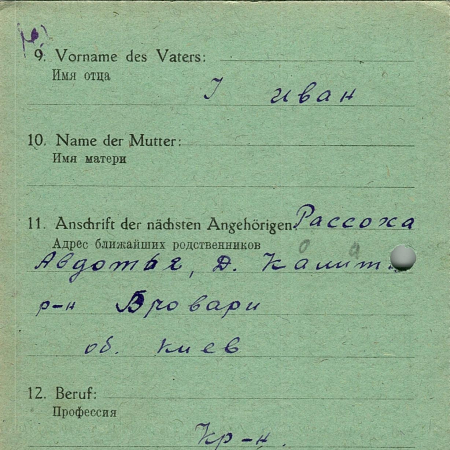 9. Vorname des Vaters:
Имя отца
І иван
10. Name der Mutter:
Имя матери
11. Anschrift der nächsten Angehörigen: Рассоха
Адрес ближайших родственников
Авдотья, Д. Калит
р-н Бровари
об. Киев
12. Beruf:
Профессия
Кр-н.